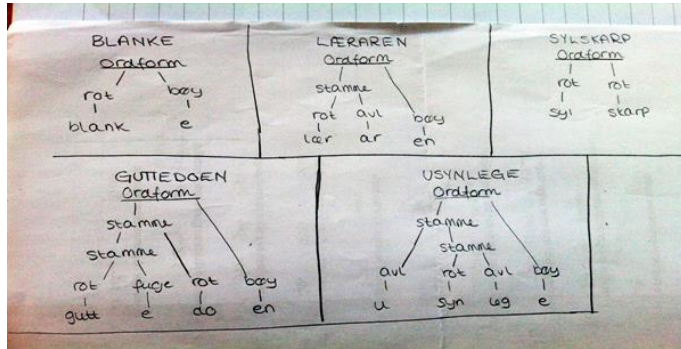 BLANKE
Ordform
rot bøy
blank e
LÆRAREN
Ordform
stamme
rot avl bøy
lær ar en
SYLSKARP
Ordform
rot rot
syl skarp
GUTTEDOEN
Ordform
stamme
stamme
rot fuge rot bøy
gutt e do en
USYNLEGE
Ordform
stamme
stamme
avl rot avl bøy
u syn leg e